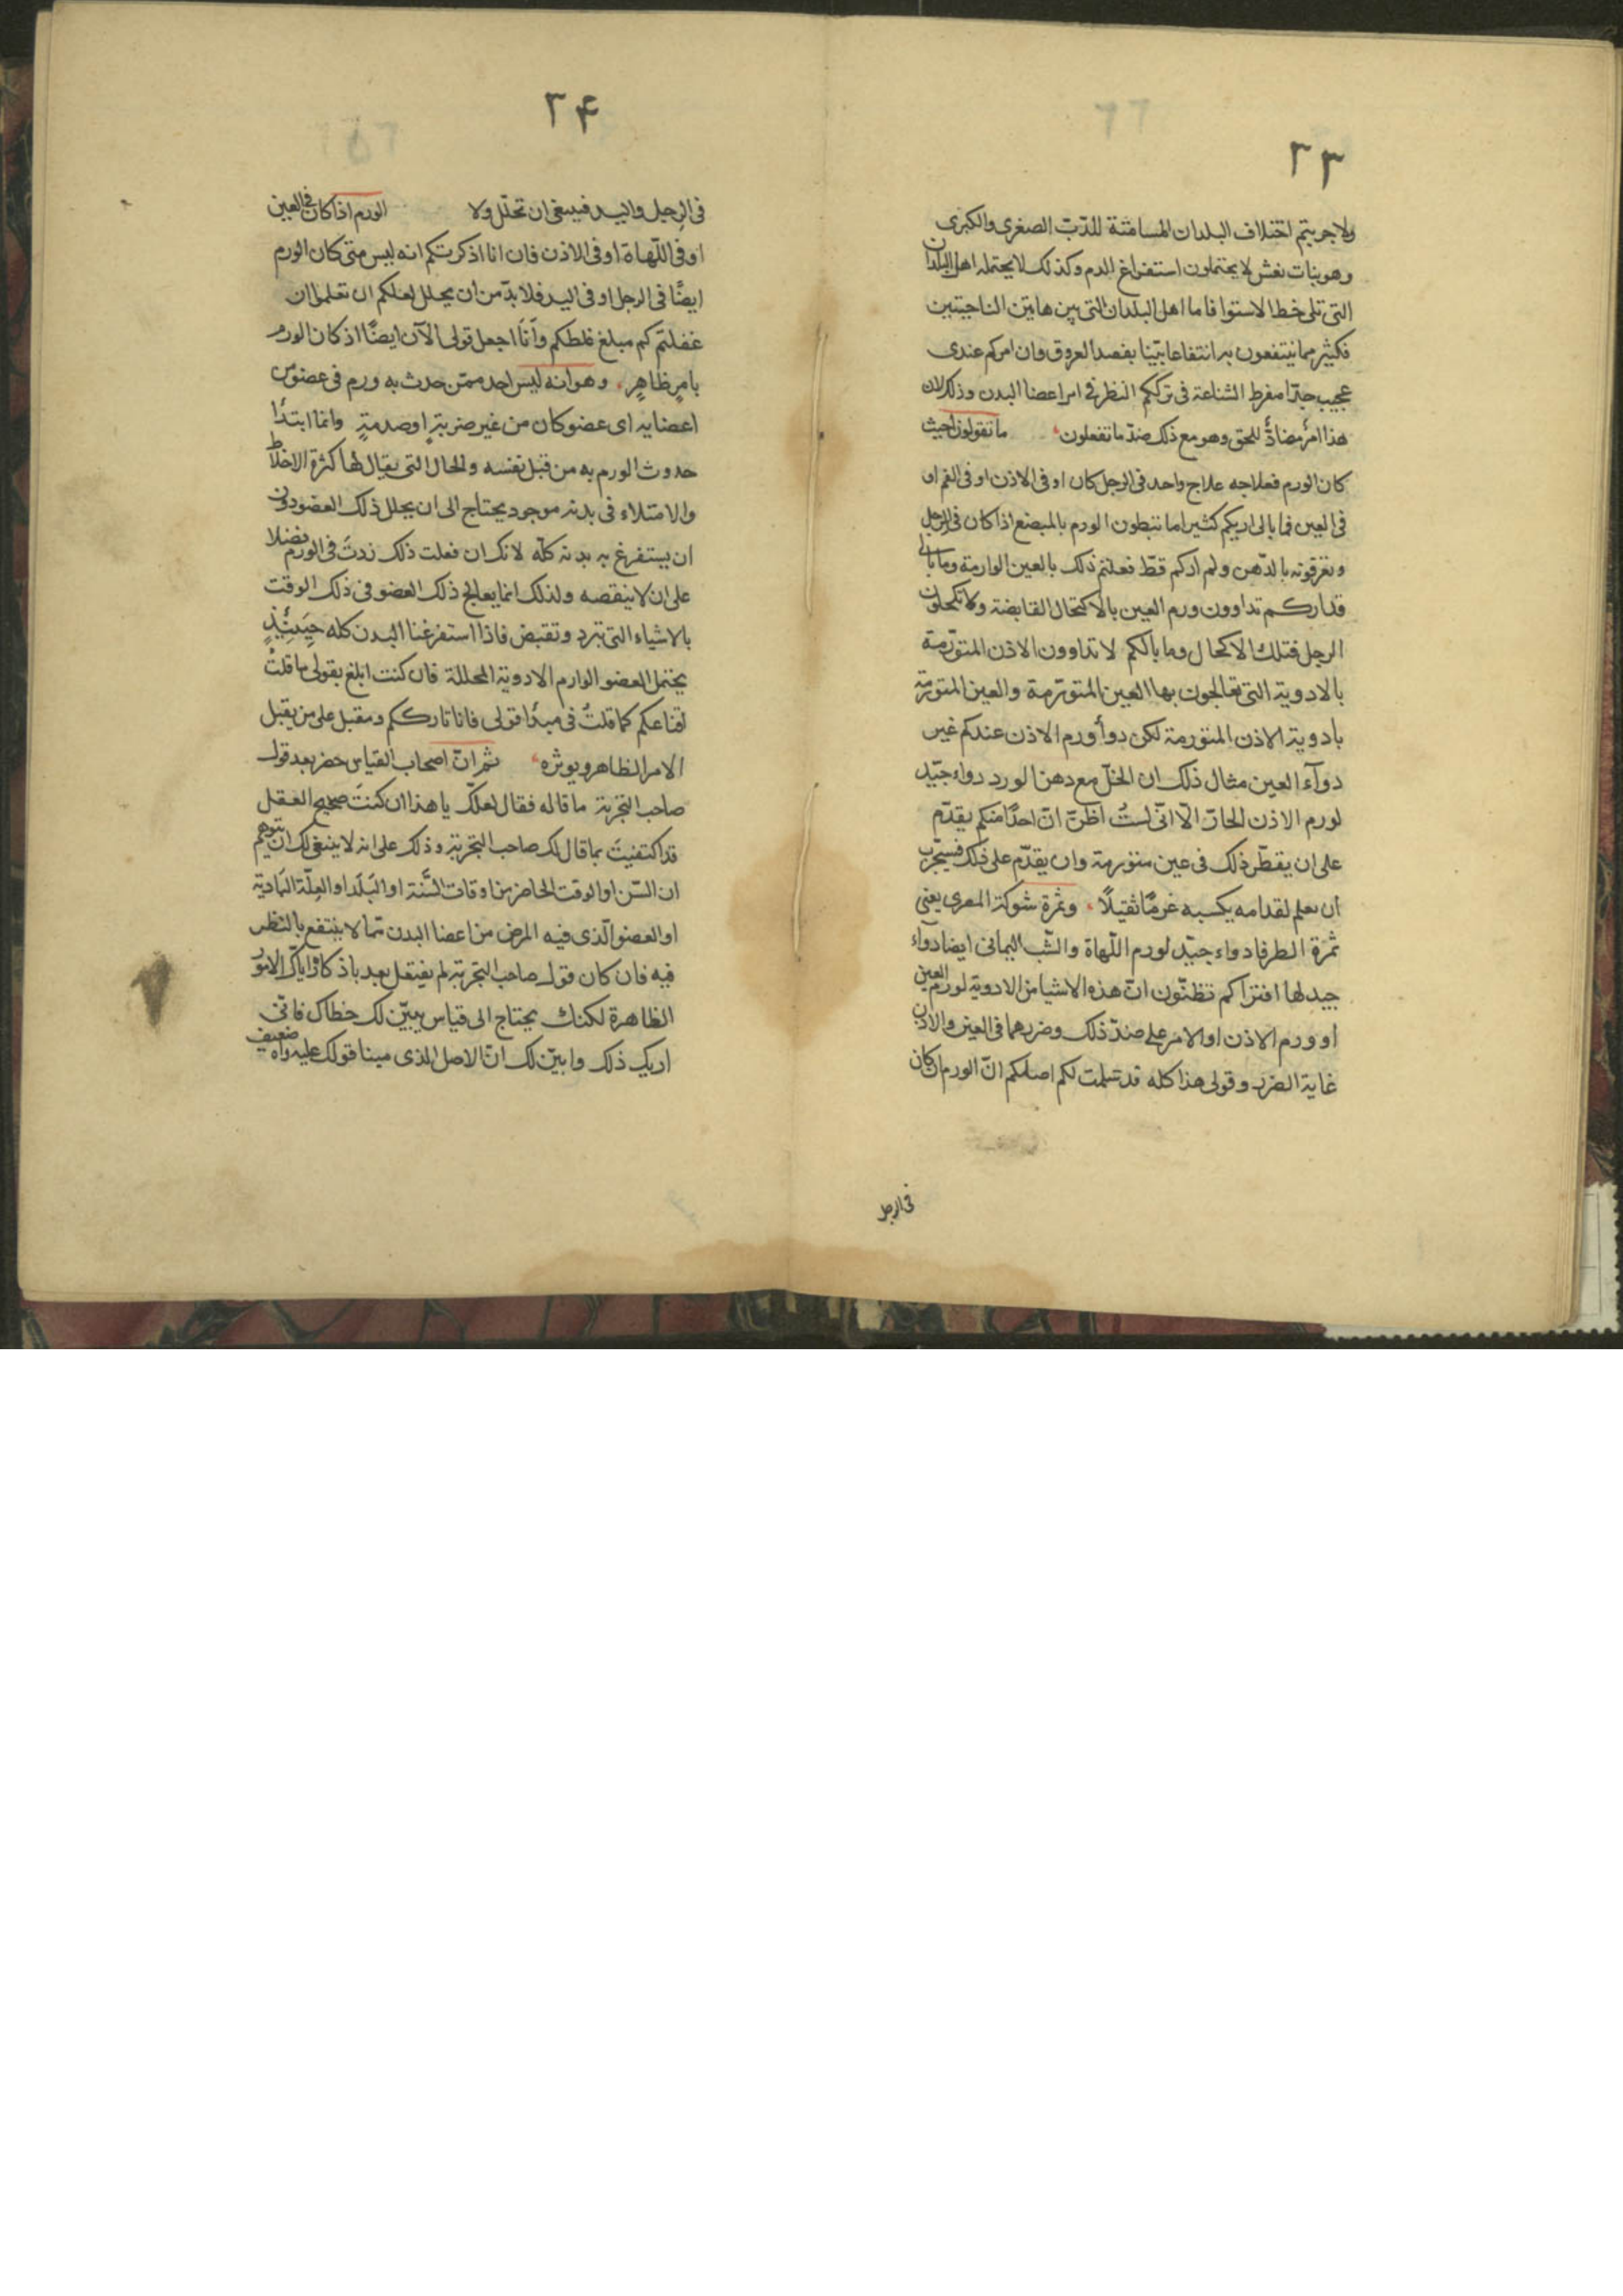 ٢٣
ولا جربتم اختلاف البلدان المسامتة للدّبّ الصغرى والكبرى
وهو بنات نعش لا يحتملون استفراغ الدم وكذلك لا يحتمله اهل البلدان
التى تلى خط الاستوا فاما اهل البلدان التى بين هاتين الناحيتين
فكثير مما ينتفعون به انتفاعا بيّنا بفصد العروق وان امركم عندى
عجيب جدّا مفرط الشناعة فى ترككم النظر فى امر اعضا البدن وذلك لان
هذا امرٌ مضادٌّ للحق وهو مع ذلك ضدّ ما تفعلون ما تقولون حيث
كان الورم فعلاجه علاج واحد فى الرجل كان او فى الاذن او فى الفم او
فى العين فما بالى اريكم كثيرا ما تبطون الورم بالمبضع اذا كان فى الرجل
وتغرقونه بالدّهن ولم اركم قطّ فعلتم ذلك بالعين الوارمة وما بالى
قد اركم تداوون ورم العين بالاكتحال القابضة ولا تكحلون
الرجل فتلك الاكحال وما بالكم لا تداوون الاذن المتورّمة
بالادوية التى تعالجون بها العين المتورّمة والعين المتورمة
بادوية الاذن المتورمة لكن دوأ ورم الاذن عندكم غير
دوآء العين مثال ذلك ان الخلّ مع دهن الورد دواء جيّد
لورم الاذن الحارّ الّا انّى لستُ اظنّ انّ احدًا منكم يقدّم
على ان يقطّر ذلك فى عين متورمة وان يقدّم على ذلك فسيجرب
ان يعلم لقدامه يكسبه غرمًا ثقيلًا وثمرة شوكة المصرى يعنى
ثمرة الطرفا دواء جيّد لورم اللّهاة والشّب اليمانى ايضا دواء
جيد لها افتراكم تظنّون انّ هذه الاشيا من الادوية لورم العين
او ورم الاذن او الامر على ضدّ ذلك وضررهما فى العين والاذن
غاية الضرر وقولى هذا كله قد تسلمت لكم اصلكم انّ الورم ان كان
فى الرجل
٢۴
فى الرجل واليد فينبغى ان تحلل ولا الورم اذا كان فى العين
او فى اللّهاة او فى الاذن فان انا اذكرتكم انه ليس متى كان الورم
ايضًا فى الرجل او فى اليد فلا بدّ من ان يحلل لعلكم ان تعلموا ان
غفلتم كم مبلغ غلطكم وأنَا اجعل قولى الآن ايضًا اذ كان الورم
بامرٍ ظاهرٍ وهو انه ليس احد ممّن حدث به ورم فى عضو من
اعضايه اى عضو كان من غير ضربةٍ او صدمةٍ وانما ابتدأ
حدوث الورم به من قبل نفسه والحال التى يقال لها كثرة الاخلاط
والامتلاء فى بدنه موجود يحتاج الى ان يحلل ذلك العضو دون
ان يستفرغ به بدنه كلّه لانك ان فعلت ذلك زدتَ فى الورم فضلا
على ان لا ينقصه ولذلك انما يعالج ذلك العضو فى ذلك الوقت
بالاشياء التى تبرد وتقبض فاذا استفرغنا البدن كله حِينَئِذٍ
يحتمل العضو الوارم الادوية المحللة فان كنت ابلغ بقولى ما قلتُ
اقناعكم كما قلتُ فى مبدأ قولى فانا تارككم ومقبل على من يقبل
الامر الظاهر ويوثره ثم انّ اصحاب القياس حضر بعد قول
صاحب التجربة ما قاله فقال لعلّك يا هذا ان كنتَ صحيح العقل
قد اكتفيتَ بما قال لك صاحب التجربة وذلك على انه لا ينبغى لك ان تتوهم
ان السّن او الوقت الحاضر من اوقات السَّنَة او البَلَد او العِلّة البَادية
او العضو الّذى فيه المرض من اعضا البدن مما لا ينتفع بالنظر
فيه فان كان قول صاحب التجربة لم يفتقل بعد باذكاره ايّاك الامور
الظاهرة لكنك يحتاج الى قياس يبيّن لك خطاك فانّى
اريك ذلك وابيّن لك انّ الاصل الذى مبنا قولك عليه واه ضعيف